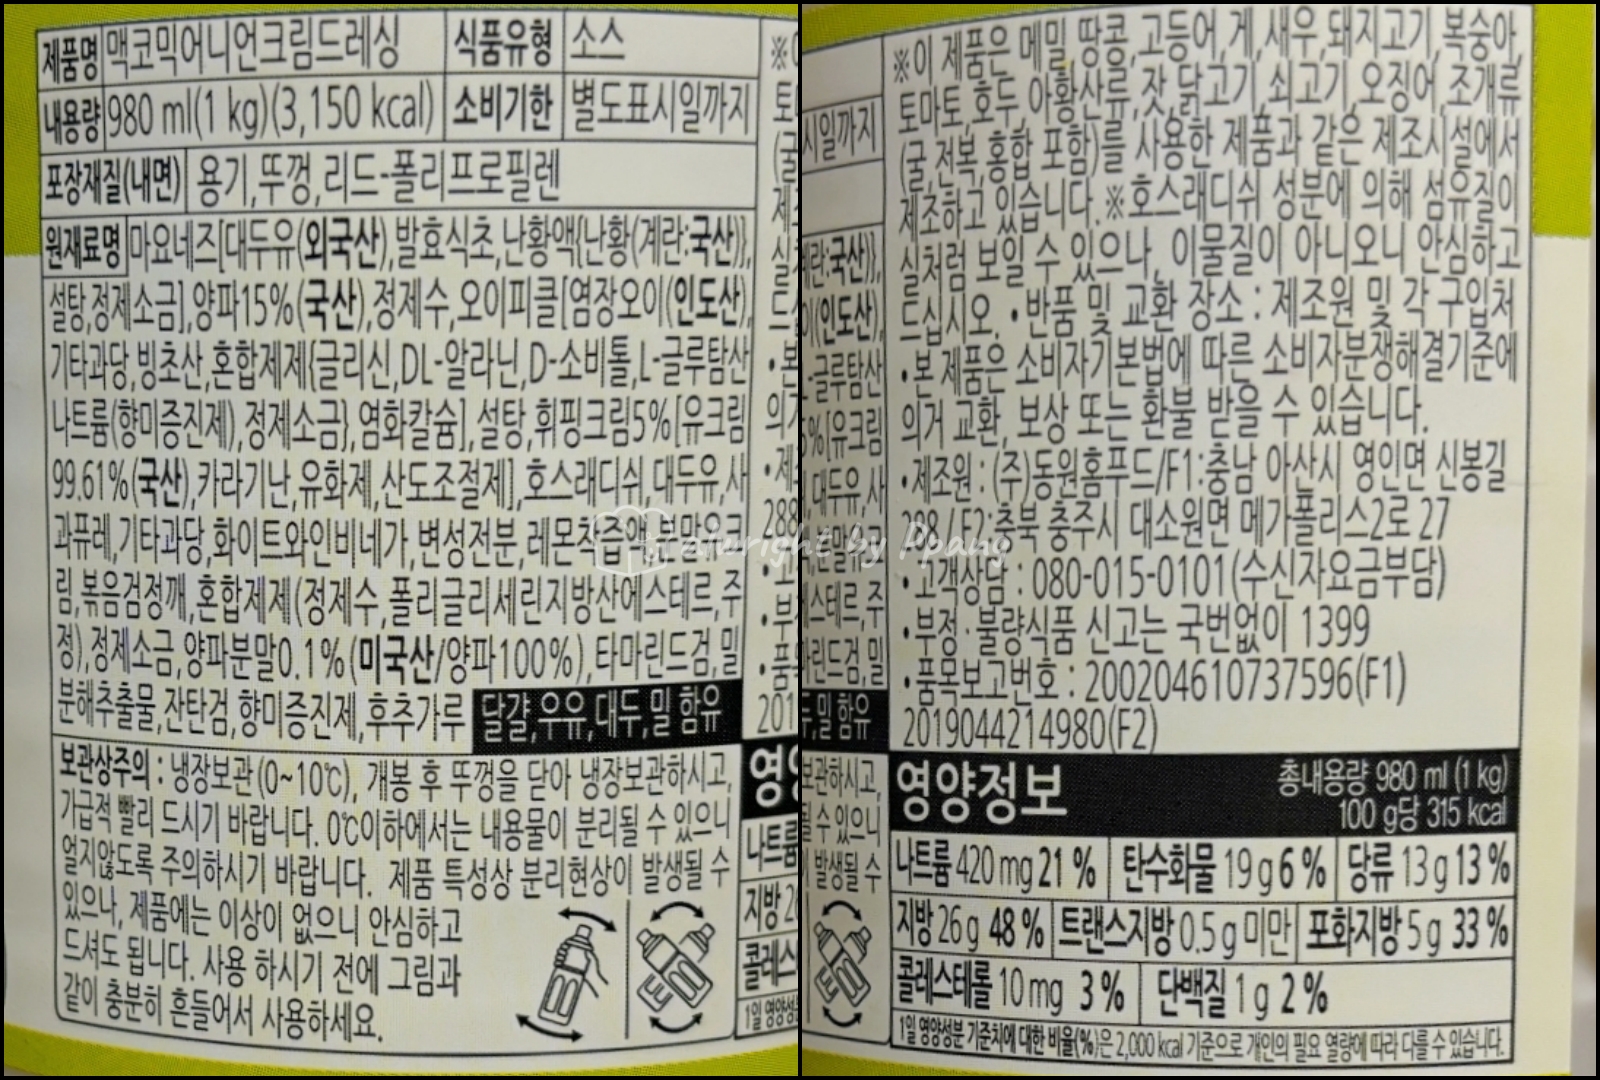 제품명 맥코믹어니언크림드레싱 식품유형 소스
내용량 980 ml(1 kg)(3,150 kcal) 소비기한 별도표시일까지
포장재질(내면) 용기,뚜껑,리드-폴리프로필렌
원재료명 마요네즈[대두유(외국산),발효식초,난황액{난황(계란:국산)},
설탕,정제소금],양파15%(국산),정제수,오이피클[염장오이(인도산),
기타과당,빙초산,혼합제제{글리신,DL-알라닌,D-소비톨,L-글루탐산
나트륨(향미증진제),정제소금},염화칼슘],설탕,휘핑크림5%[유크림
99.61%(국산),카라기난,유화제,산도조절제],호스래디쉬,대두유,사
과퓨레,기타과당,화이트와인비네가,변성전분,레몬착즙액,분말유크
림,볶음검정깨,혼합제제(정제수,폴리글리세린지방산에스테르,주
정),정제소금,양파분말0.1%(미국산/양파100%),타마린드검,밀
분해추출물,잔탄검,향미증진제,후추가루 달걀,우유,대두,밀 함유
보관상주의 : 냉장보관(0~10℃), 개봉 후 뚜껑을 닫아 냉장보관하시고,
가급적 빨리 드시기 바랍니다. 0℃이하에서는 내용물이 분리될 수 있으니
얼지않도록 주의하시기 바랍니다. 제품 특성상 분리현상이 발생될 수
있으나, 제품에는 이상이 없으니 안심하고
드셔도 됩니다. 사용 하시기 전에 그림과
같이 충분히 흔들어서 사용하세요.
※이 제품은 메밀,땅콩,고등어,게,새우,돼지고기,복숭아,
토마토,호두,아황산류,잣,닭고기,쇠고기,오징어,조개류
(굴,전복,홍합 포함)를 사용한 제품과 같은 제조시설에서
제조하고 있습니다.※호스래디쉬 성분에 의해 섬유질이
실처럼 보일 수 있으나, 이물질이 아니오니 안심하고
드십시오. •반품 및 교환 장소 : 제조원 및 각 구입처
•본 제품은 소비자기본법에 따른 소비자분쟁해결기준에
의거 교환, 보상 또는 환불 받을 수 있습니다.
•제조원 : (주)동원홈푸드/F1:충남 아산시 영인면 신봉길
288 / F2:충북 충주시 대소원면 메가폴리스2로 27
•고객상담 : 080-015-0101(수신자요금부담)
•부정·불량식품 신고는 국번없이 1399
•품목보고번호 : 200204610737596(F1)
2019044214980(F2)
영양정보 총내용량 980 ml (1 kg)
100 g당 315 kcal
나트륨 420 mg 21 % 탄수화물 19 g 6 % 당류 13 g 13 %
지방 26 g 48 % 트랜스지방 0.5 g 미만 포화지방 5 g 33 %
콜레스테롤 10 mg 3 % 단백질 1 g 2 %
1일 영양성분 기준치에 대한 비율(%)은 2,000 kcal 기준으로 개인의 필요 열량에 따라 다를 수 있습니다.